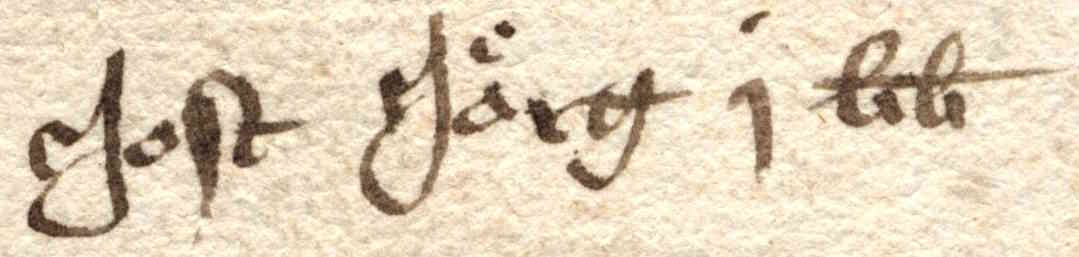 Jost Jörg j lib